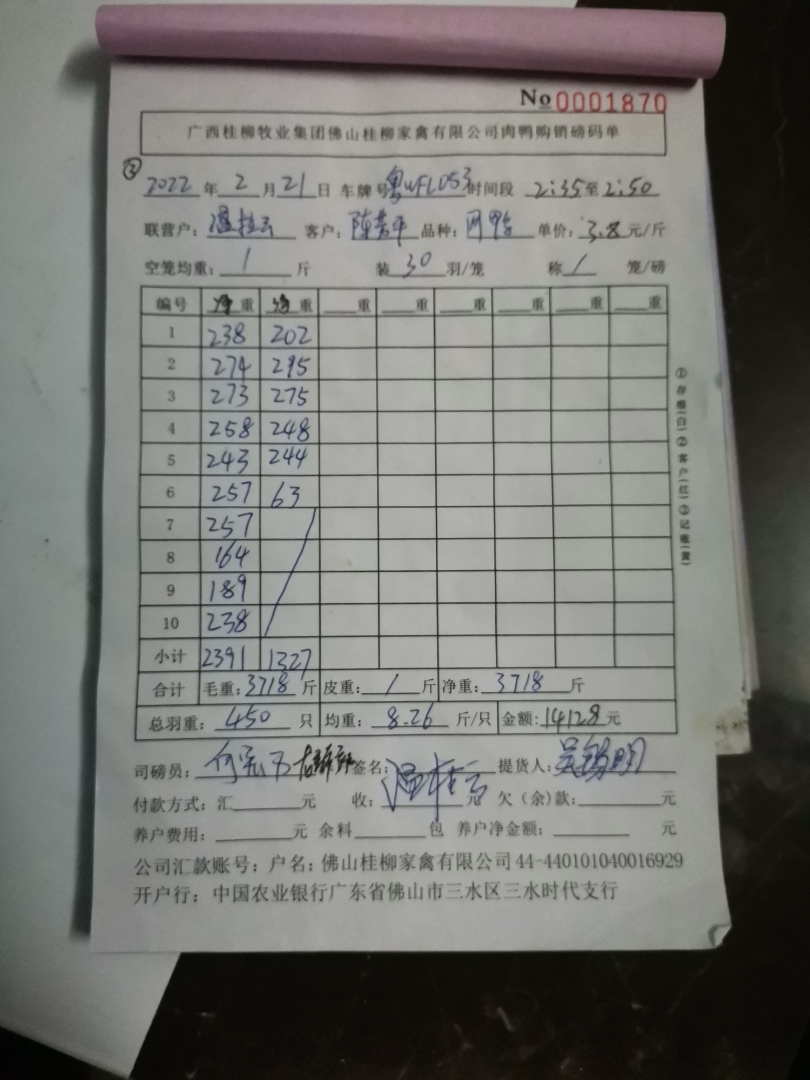 No 0001870
广西桂柳牧业集团佛山桂柳家禽有限公司肉鸭购销磅码单
② 2022年2月21日 车牌号 粤WFL053 时间段 2:35至2:50
联营户：温桂云 客户：陈 平 品种： 鸭 单价：3.8元/斤
空笼均重：1斤 装30羽/笼 称1笼/磅
编号 净重 净重 重 重 重 重 重 重
1 238 202
2 274 295
3 273 275
4 258 248
5 243 244
6 257 63
7 257
8 164
9 189
10 238
小计 2391 1327
合计 毛重：3718斤 皮重：/斤 净重：3718斤
总羽重：450只 均重：8.26斤/只 金额：14128元
司磅员：何 签名：温桂云 提货人：吴锡明
付款方式：汇 元 收： 元 欠（余）款： 元
养户费用： 元 余料 包 养户净金额： 元
公司汇款账号：户名：佛山桂柳家禽有限公司44-440101040016929
开户行：中国农业银行广东省佛山市三水区三水时代支行
①存根(白)②客户(红)③记账(黄)